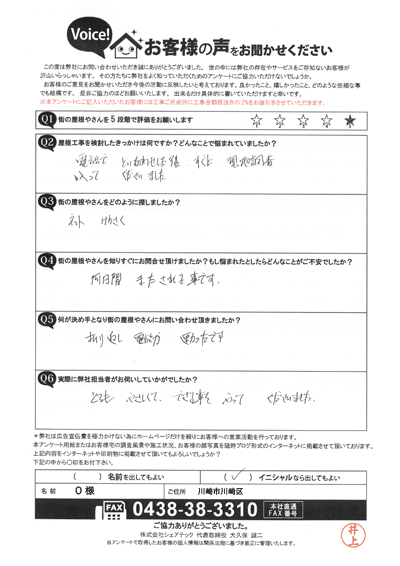 Voice!
お客様の声をお聞かせください
この度は弊社にお問い合わせいただき誠にありがとうございました。世の中には弊社の存在やサービスをご存知ないお客様が
沢山いらっしゃいます。その方たちに弊社をよく知っていただくためのアンケートにご協力いただけないでしょうか。
お客様のご意見をお聞かせいただき今後の活動に反映したいと考えております。良かったこと、嬉しかったこと、どのような些細な事
でも結構です。是非ご協力のほどお願いいたします。出来るだけ具体的に書いていただけますと幸いです。
※本アンケートにご記入いただいたお客様には工事ご用命時に工事金額税抜きの2%をお値引きさせていただきます。
Q1 街の屋根やさんを5段階で評価をお願いします ☆ ☆ ☆ ☆ ★
Q2 屋根工事を検討したきっかけは何ですか?どんなことで悩まれていましたか?
電話で といあわせした後 すぐに 現地調査
入って くださいました
Q3 街の屋根やさんをどのように探しましたか?
ネット けんさく
Q4 街の屋根やさんを知りすぐにお問合せ頂けましたか?もし悩まれたとしたらどんなことがご不安でしたか?
何日間 またされる事です.
Q5 何が決め手となり街の屋根やさんにお問い合わせ頂きましたか?
おり返し 電話が 早かったです
Q6 実際に弊社担当者がお伺いしていかがでしたか?
とても やさしくて くださいました.
※弊社は広告宣伝費を極力かけない為にホームページだけを頼りにお客様への営業活動を行っております。
本アンケート用紙またはお客様宅の調査風景や施工状況、お客様の顔写真を随時ブログ形式のインターネットに掲載させて頂いております。
上記内容をインターネットや印刷物に掲載させて頂いてもよろしいでしょうか?
下記の中から〇印をお付下さい。
( ) 名前を出してもよい ( ✓ ) イニシャルなら出してもよい
名前 O 様 ご住所 川崎市川崎区
FAX 0438-38-3310 本社直通 FAX番号
ご協力ありがとうございました。
株式会社シェアテック 代表取締役 大久保 誠二
当アンケートで取得したお客様の個人情報は関係法規に基づき厳正に管理いたします。
井上